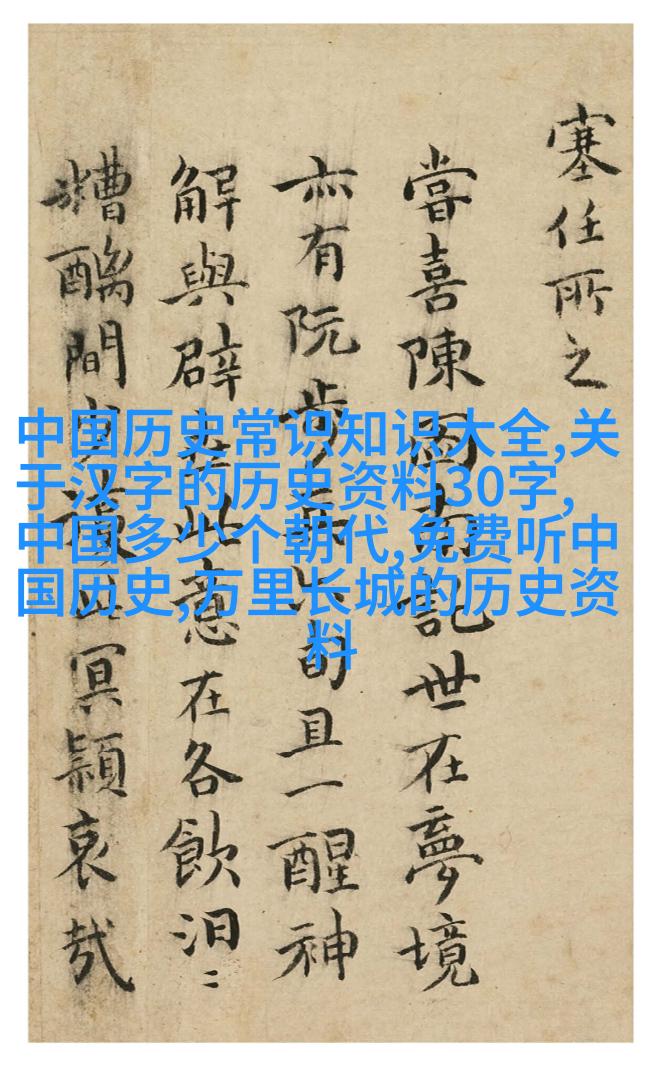 塞任所之
嘗喜陳南記世在夢境
亦有阮步且一醒神
解與辟此意在各飲汩〻
糟醨間冥穎哀哉
中国历史常识知识大全,关
于汉字的历史资料30字,
中国多少个朝代,免费听中
国历史,万里长城的历史资
料